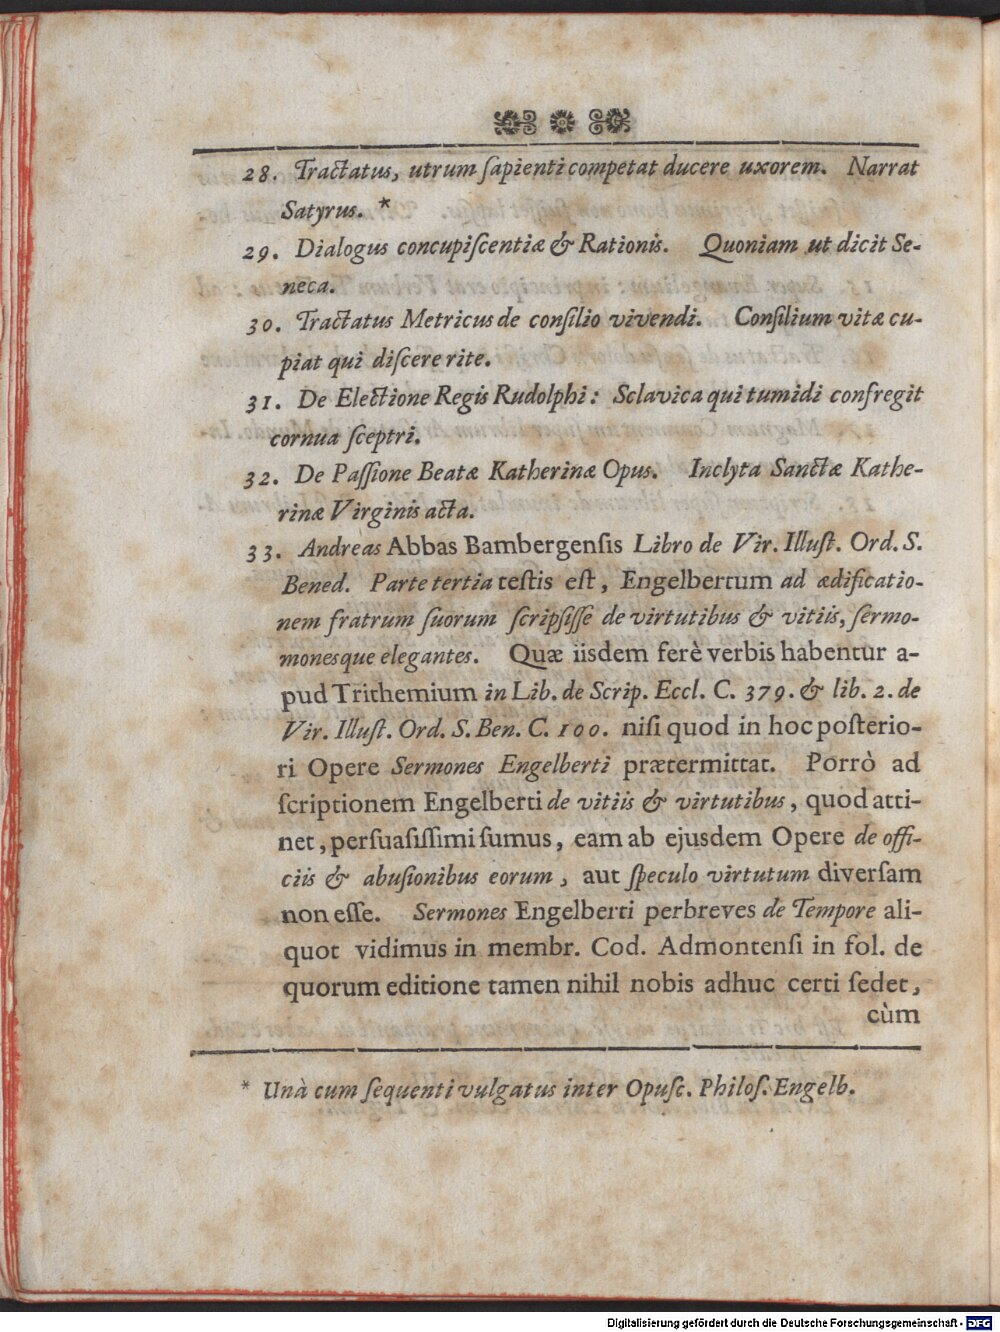 28. Tractatus, utrum ſapienti competat ducere uxorem. Narrat
Satyrus. *
29. Dialogus concupiſcentiæ & Rationis. Quoniam ut dicit Se-
neca.
30. Tractatus Metricus de conſilio vivendi. Conſilium vitæ cu-
piat qui diſcere rite.
31. De Electione Regis Rudolphi: Sclavica qui tumidi confregit
cornua ſceptri.
32. De Paſſione Beatæ Katherinæ Opus. Inclyta Sanctæ Kathe-
rinæ Virginis acta.
33. Andreas Abbas Bambergenſis Libro de Vir. Illuſt. Ord. S.
Bened. Parte tertia teſtis eſt, Engelbertum ad ædificatio-
nem fratrum ſuorum ſcripſiſſe de virtutibus & vitiis, ſermo-
monesque elegantes. Quæ iisdem ferè verbis habentur a-
pud Trithemium in Lib. de Scrip. Eccl. C. 379. & lib. 2. de
Vir. Illuſt. Ord. S. Ben. C. 100. niſi quod in hoc poſterio-
ri Opere Sermones Engelberti prætermittat. Porrò ad
ſcriptionem Engelberti de vitiis & virtutibus, quod atti-
net, perſuaſiſſimi ſumus, eam ab ejusdem Opere de offi-
ciis & abuſionibus eorum, aut ſpeculo virtutum diverſam
non eſſe. Sermones Engelberti perbreves de Tempore ali-
quot vidimus in membr. Cod. Admontenſi in fol. de
quorum editione tamen nihil nobis adhuc certi ſedet,
cùm
* Unà cum ſequenti vulgatus inter Opuſc. Philoſ. Engelb.
Digitalisierung gefördert durch die Deutsche Forschungsgemeinschaft - DFG